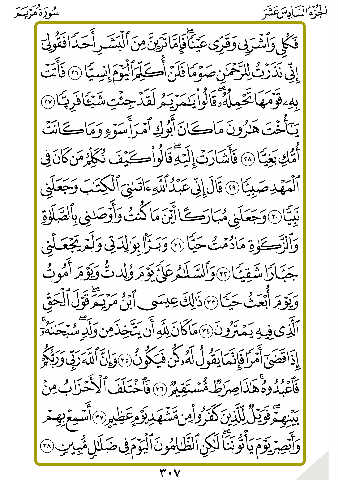 الجزء السادس عشر
سورة مريم
فَكُلِي وَاشْرَبِي وَقَرِّي عَيْنًا فَإِمَّا تَرَيِنَّ مِنَ الْبَشَرِ أَحَدًا فَقُولِي
إِنِّي نَذَرْتُ لِلرَّحْمَٰنِ صَوْمًا فَلَنْ أُكَلِّمَ الْيَوْمَ إِنسِيًّا ﴿٢٦﴾ فَأَتَتْ
بِهِ قَوْمَهَا تَحْمِلُهُ قَالُوا يَا مَرْيَمُ لَقَدْ جِئْتِ شَيْئًا فَرِيًّا ﴿٢٧﴾
يَا أُخْتَ هَارُونَ مَا كَانَ أَبُوكِ امْرَأَ سَوْءٍ وَمَا كَانَتْ
أُمُّكِ بَغِيًّا ﴿٢٨﴾ فَأَشَارَتْ إِلَيْهِ قَالُوا كَيْفَ نُكَلِّمُ مَن كَانَ فِي
الْمَهْدِ صَبِيًّا ﴿٢٩﴾ قَالَ إِنِّي عَبْدُ اللَّهِ آتَانِيَ الْكِتَابَ وَجَعَلَنِي
نَبِيًّا ﴿٣٠﴾ وَجَعَلَنِي مُبَارَكًا أَيْنَ مَا كُنتُ وَأَوْصَانِي بِالصَّلَاةِ
وَالزَّكَاةِ مَا دُمْتُ حَيًّا ﴿٣١﴾ وَبَرًّا بِوَالِدَتِي وَلَمْ يَجْعَلْنِي
جَبَّارًا شَقِيًّا ﴿٣٢﴾ وَالسَّلَامُ عَلَيَّ يَوْمَ وُلِدتُّ وَيَوْمَ أَمُوتُ
وَيَوْمَ أُبْعَثُ حَيًّا ﴿٣٣﴾ ذَٰلِكَ عِيسَى ابْنُ مَرْيَمَ قَوْلَ الْحَقِّ
الَّذِي فِيهِ يَمْتَرُونَ ﴿٣٤﴾ مَا كَانَ لِلَّهِ أَن يَتَّخِذَ مِن وَلَدٍ سُبْحَانَهُ
إِذَا قَضَىٰ أَمْرًا فَإِنَّمَا يَقُولُ لَهُ كُن فَيَكُونُ ﴿٣٥﴾ وَإِنَّ اللَّهَ رَبِّي وَرَبُّكُمْ
فَاعْبُدُوهُ هَٰذَا صِرَاطٌ مُّسْتَقِيمٌ ﴿٣٦﴾ فَاخْتَلَفَ الْأَحْزَابُ مِن
بَيْنِهِمْ فَوَيْلٌ لِّلَّذِينَ كَفَرُوا مِن مَّشْهَدِ يَوْمٍ عَظِيمٍ ﴿٣٧﴾ أَسْمِعْ بِهِمْ
وَأَبْصِرْ يَوْمَ يَأْتُونَنَا لَٰكِنِ الظَّالِمُونَ الْيَوْمَ فِي ضَلَالٍ مُّبِينٍ ﴿٣٨﴾
٣٠٧